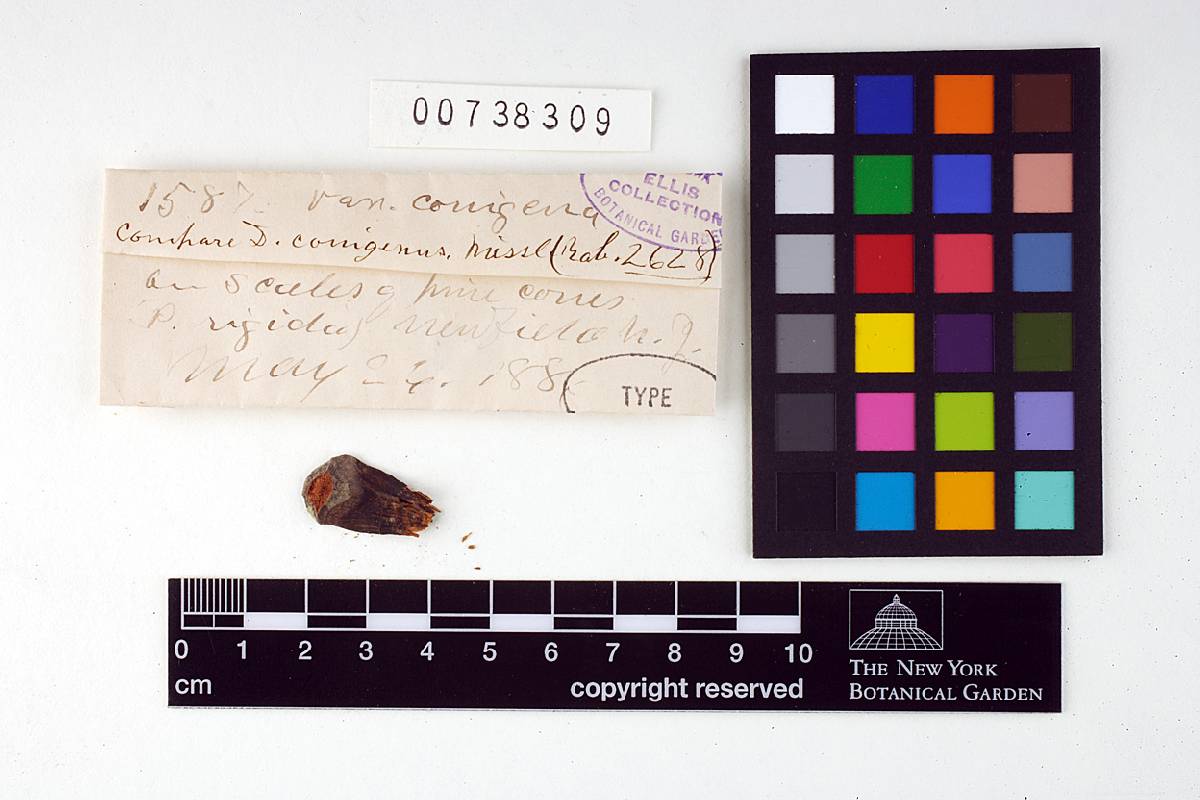 00738309
1587 var. conigena
ELLIS
COLLECTION
BOTANICAL GARDE
Compare D. conigenus, Niessl (Rab. 2628)
on Scales of pine cones
P. rigida, Newfield N. J.
May 24. 188
TYPE
0 1 2 3 4 5 6 7 8 9 10
cm copyright reserved
THE NEW YORK
BOTANICAL GARDEN